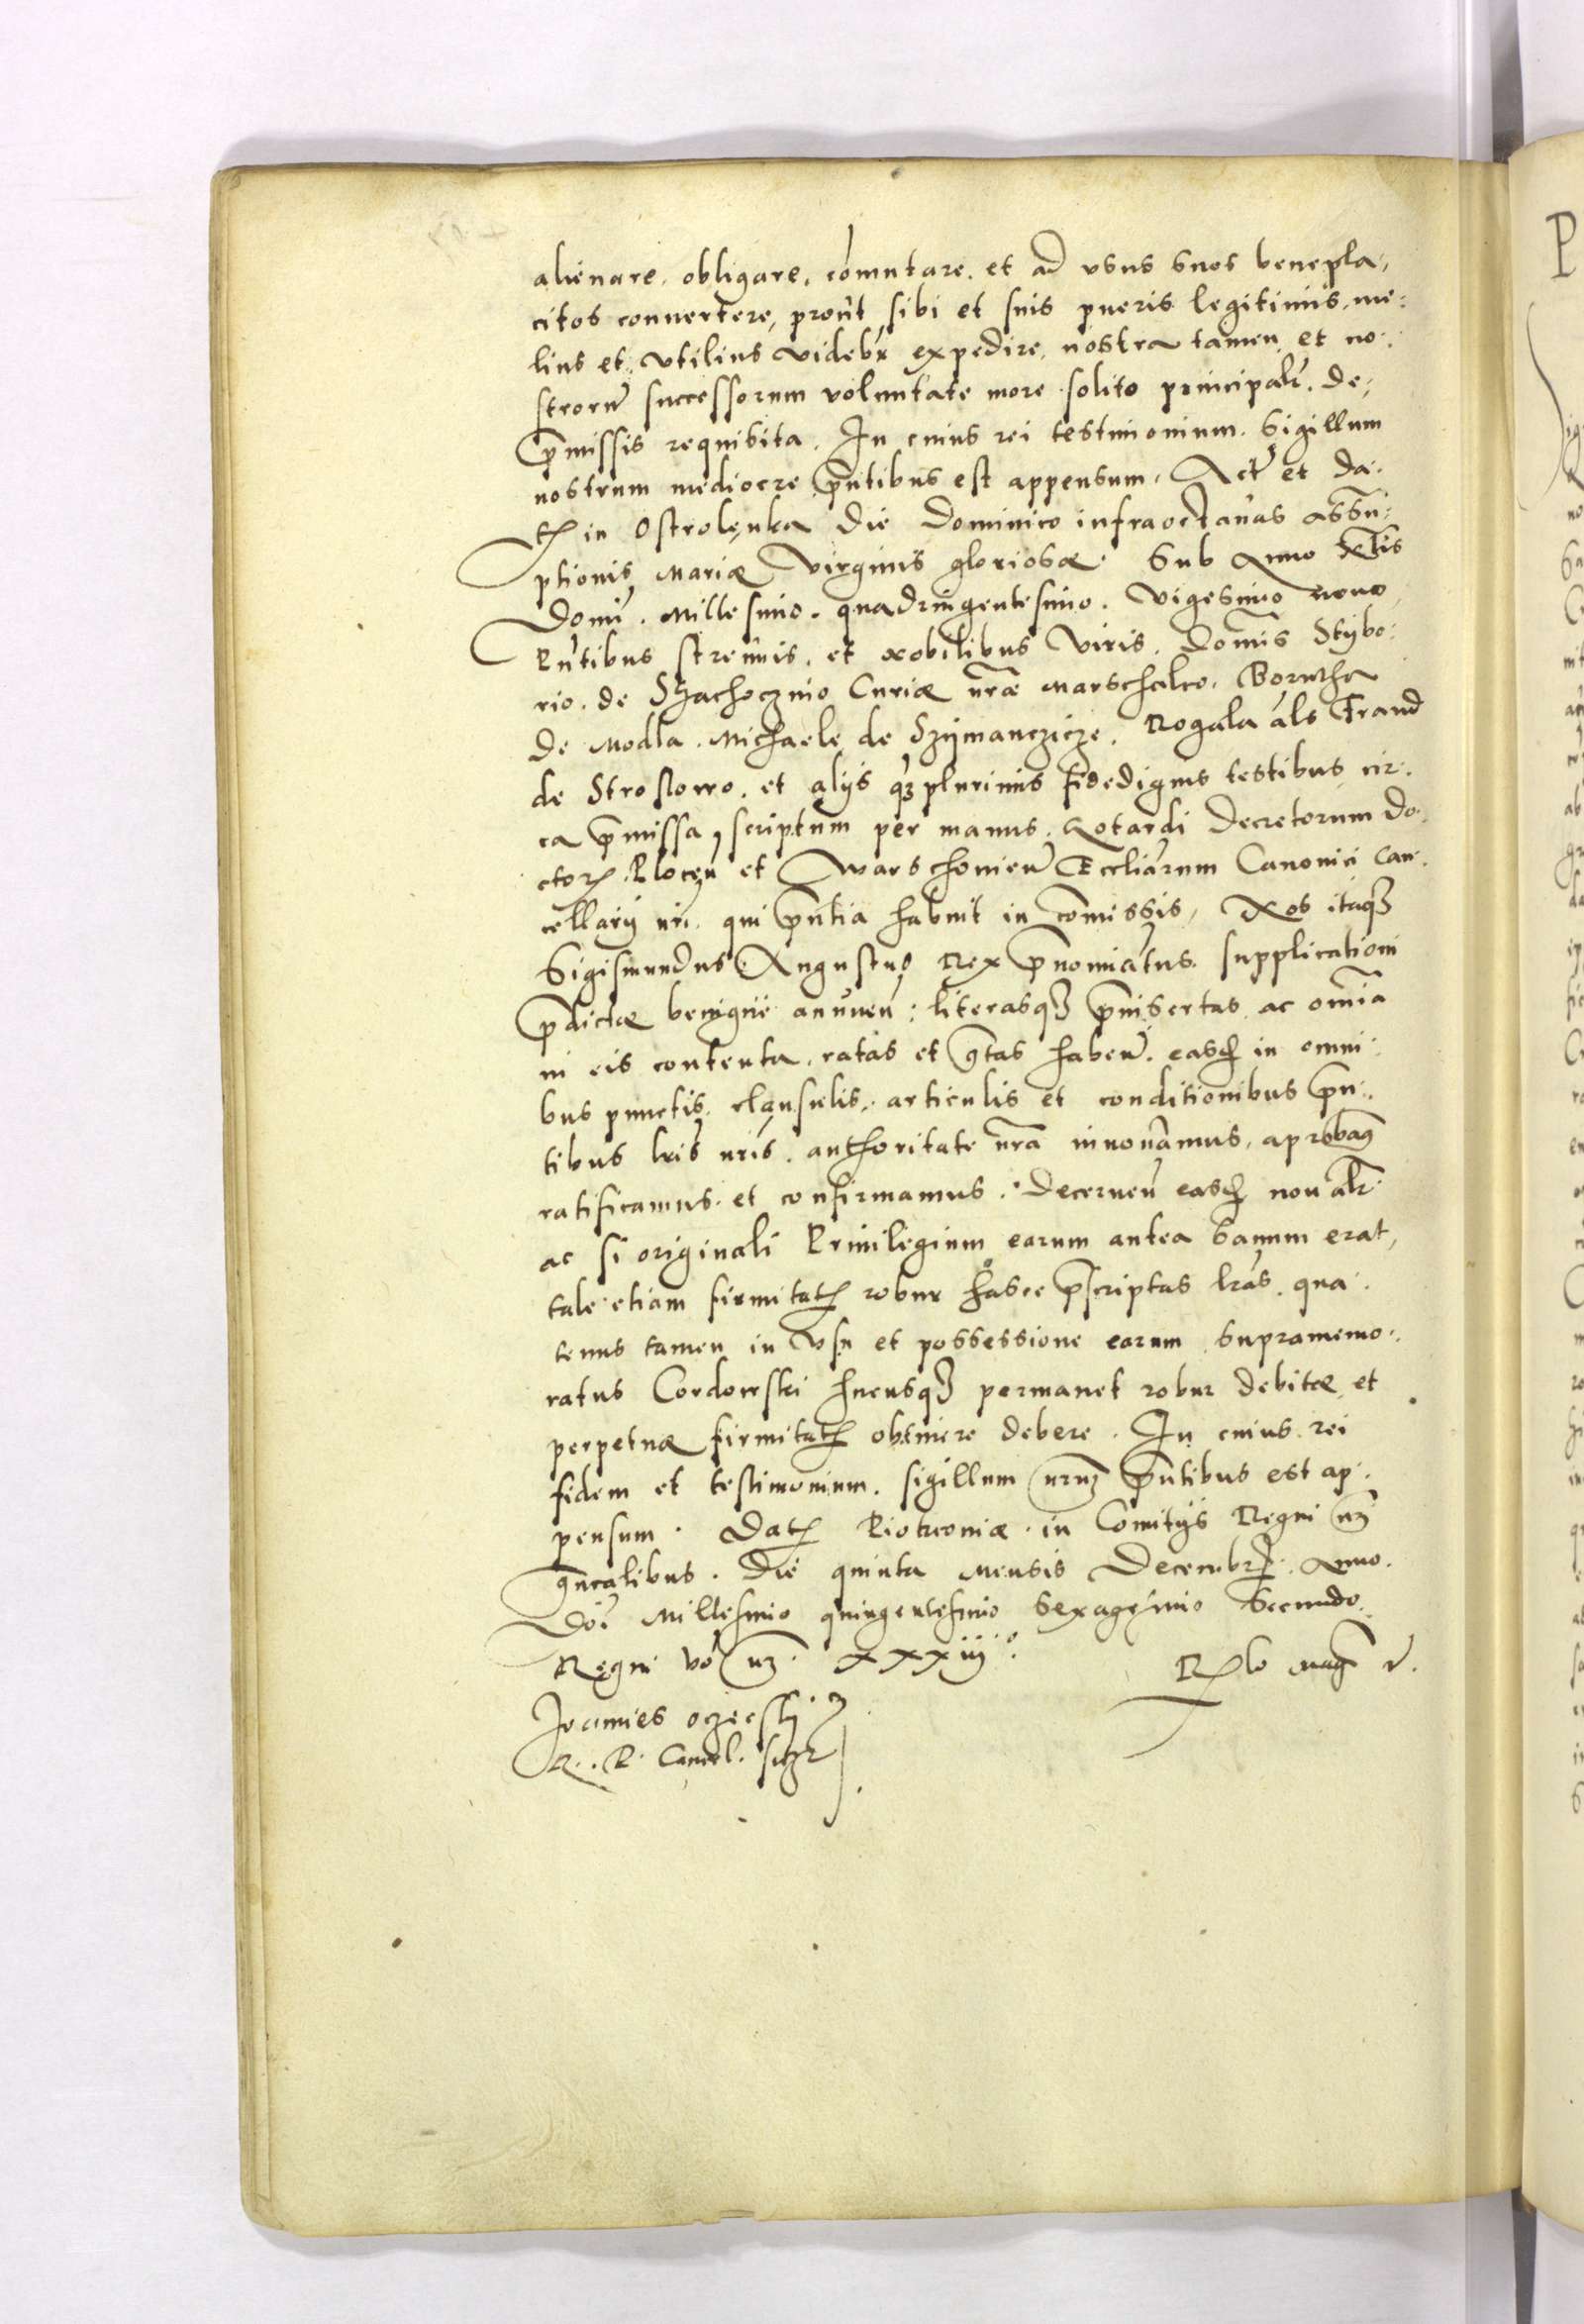 alienare, obligare, com̃utare, et ad vsus suos benepla,
citos conuertere, prout sibi et suis pueris legitimis, me:
lius et vtilius videbr̃ expedire, nostra tamen et no:
strorũ successorum voluntate more solito principalr̃. de,
p̃missis requisita. In cuius rei testimonium. Sigillum
nostrum mediocre p̃ntibus est appensum. Act̃ et da:
tꝭ in Ostrolęnka die Dominico infraoctauas assũ:
ptionis Mariæ Virginis gloriosæ. Sub Anno
Domĩ. Millesimo. quadringentesimo. vigesimo nono,
Pñtibus strenuis, et Nobilibus viris. Domĩs Stybo:
rio. de Szachoczino Curiæ nrãe Marschalco. Borutha
de Modla. Michaele de Szymanczicze. Rogala als Frand
de Strosłowo. et alijs qʒ plurimis fidedignis testibus cir:
ca p̃missa, scriptum per manus. Rotardi Decretorum do:
ctorꝭ. Plocen̄ et Warschouien̄ Eccliãrum Canonici can:
cellarij nrĩ. qui p̃ntia habuit in com̃issis, Nos itaqʒ
Sigismundus Augustus Rex p̃nomiãtus. supplicationi
p̃dictæ benignè annuen̄: literasqʒ p̃insertas ac omñia
in eis contenta, ratas et g̃tas haben̄. easdꝭ in omni:
bus punctis, clausulis, articulis et conditionibus p̃n:
tibus lrĩs nrĩs. authoritate nrã innouamus, aprobamꝰ
ratificamus. et confirmamus. Decernen̄ easdꝭ non alr̃.
ac si originali Priuilegium earum antea sanum erat,
tale etiam firmitatꝭ robur hasce p̃scriptas lrãs. qua:
tenus tamen in vsu et possessione earum supramemo:
ratus Cordowski hucusqʒ permanet robur debitæ et
perpetuæ firmitatꝭ obtinere debere. In cuius rei
fidem et testimonium. sigillum nrũʒ p̃ntibus est ap:
pensum. Datꝭ Piotrconiæ. in Comitijs Regni nrĩ
g̃ncalibus. Die quinta Mensis Decembrꝭ. Anno.
Doĩ Millesimo quingentesimo Sexagesimo Secundo.
Regni vo nrĩ. XXXiij°.
Rꝭlo Magc̃i
Joannes oczieski
R. P. Cancel. sszt